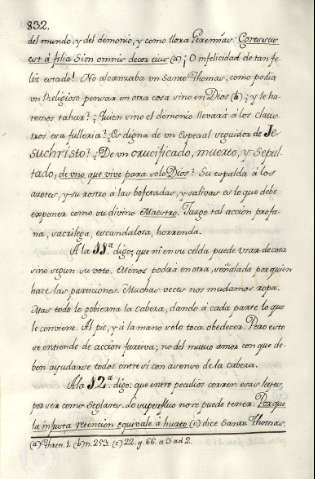 832.
del mundo, y del demonio, y como llora Jeremias. Egressus
est á filia Sion omnis decor eius (a); O infelicidad de tan fe-
liz estado! No alcanzaba un Santo Thomas, como podia
un Religioso pensar en otra cosa sino en Dios (b); y te ha-
remos tahur? ¿Quien sino el demonio llevará á los claus-
tros esa fulleria? ¿Es digna de un especial seguidor de Je
suchristo? ¿De un crucificado, muerto, y sepul-
tado, de uno que vive para solo Dios? Su espalda á los
azotes, y su rostro á las bofetadas, y salivas es lo que debe
exponer como su divino Maestro. Juzgo tal accion profa-
na, sacrilega, escandalosa, horrenda.
A la 11ª. digo; que ni en su celda puede usar de otra
sino segun su voto. Menos podrá en otra, señalada por quien
hace las particiones. Muchas veces nos mudamos ropa.
Mas todo lo gobierna la cabeza, dando á cada parte lo que
le conviene. Al pie, y á la mano solo toca obedecer. Pero esto
se entiende de accion forzosa; no del mutuo amor con que de-
ben ayudarse todos entre si con acenso de la cabeza.
A la 12ª. digo: que entre peculios corren esas leyes,
por ser como seglares. Lo superfluo no se puede tener. Porque
la injusta retencion equivale á hurto (c) dice Santo Thomas.
(a) Thren. 1. (b) n. 253. (c) 22. q. 66. a 3 ad 2.